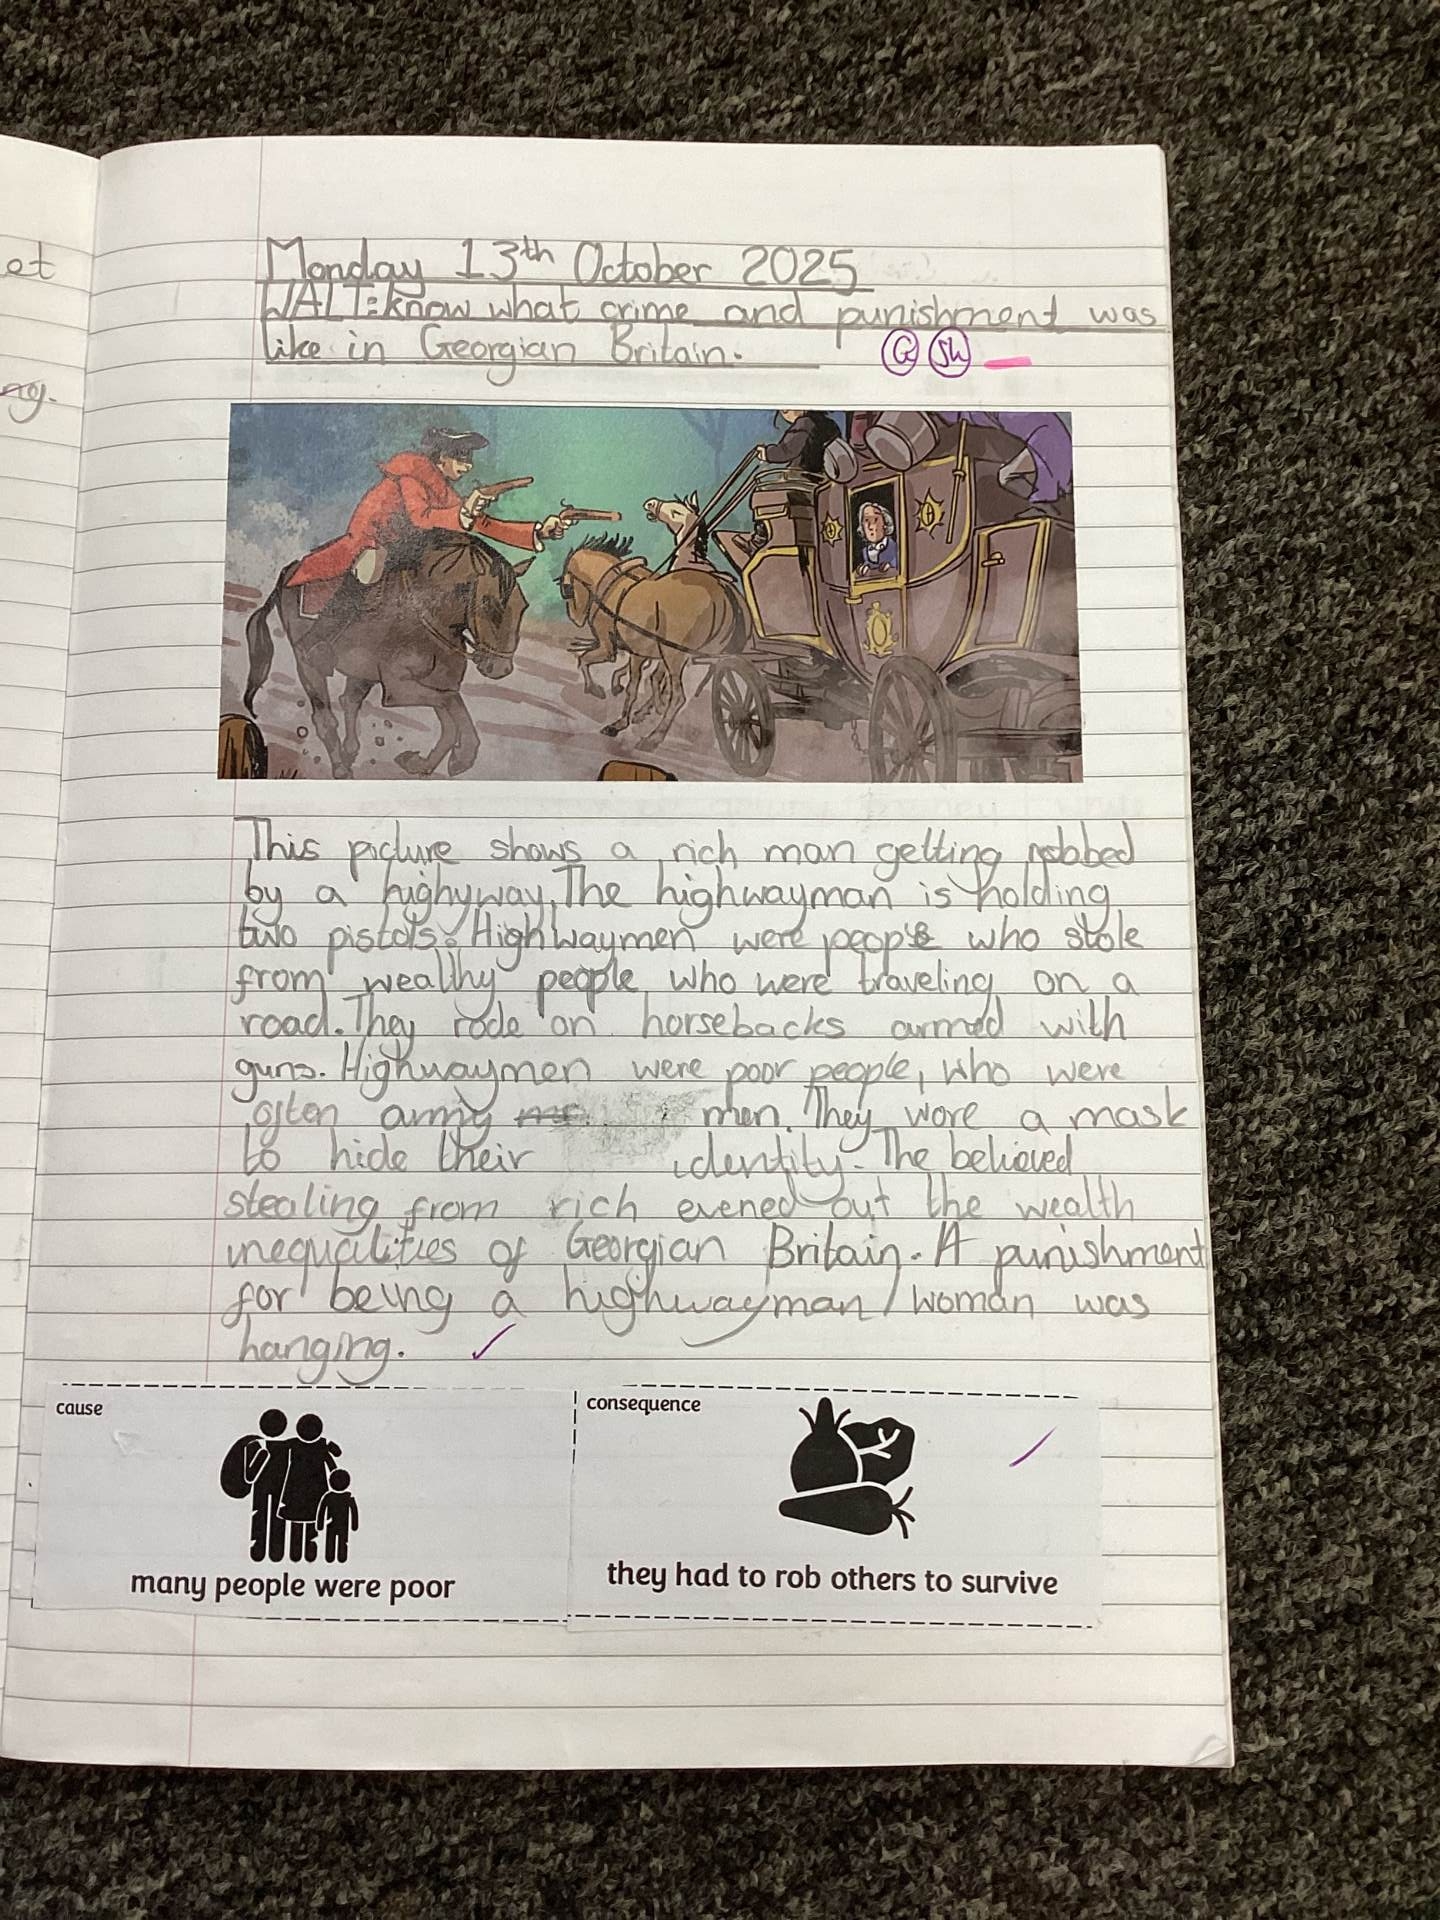 et
ng.
Monday 13th October 2025
WALT: know what crime and punishment was
like in Georgian Britain.
G Sh
This picture shows a rich man getting robbed
by a highyway. The highwayman is holding
two pistols. Highwaymen were people who stole
from wealhy people, who were traveling on a
road. They rode on horsebacks armed with
guns. Highwaymen were poor people, who were
often army men. They wore a mask
to hide their identity. The believed
stealing from rich evened out the wealth
inequalities of Georgian Britain. A punishment
for being a highwayman/woman was
hanging.
cause
many people were poor
consequence
they had to rob others to survive